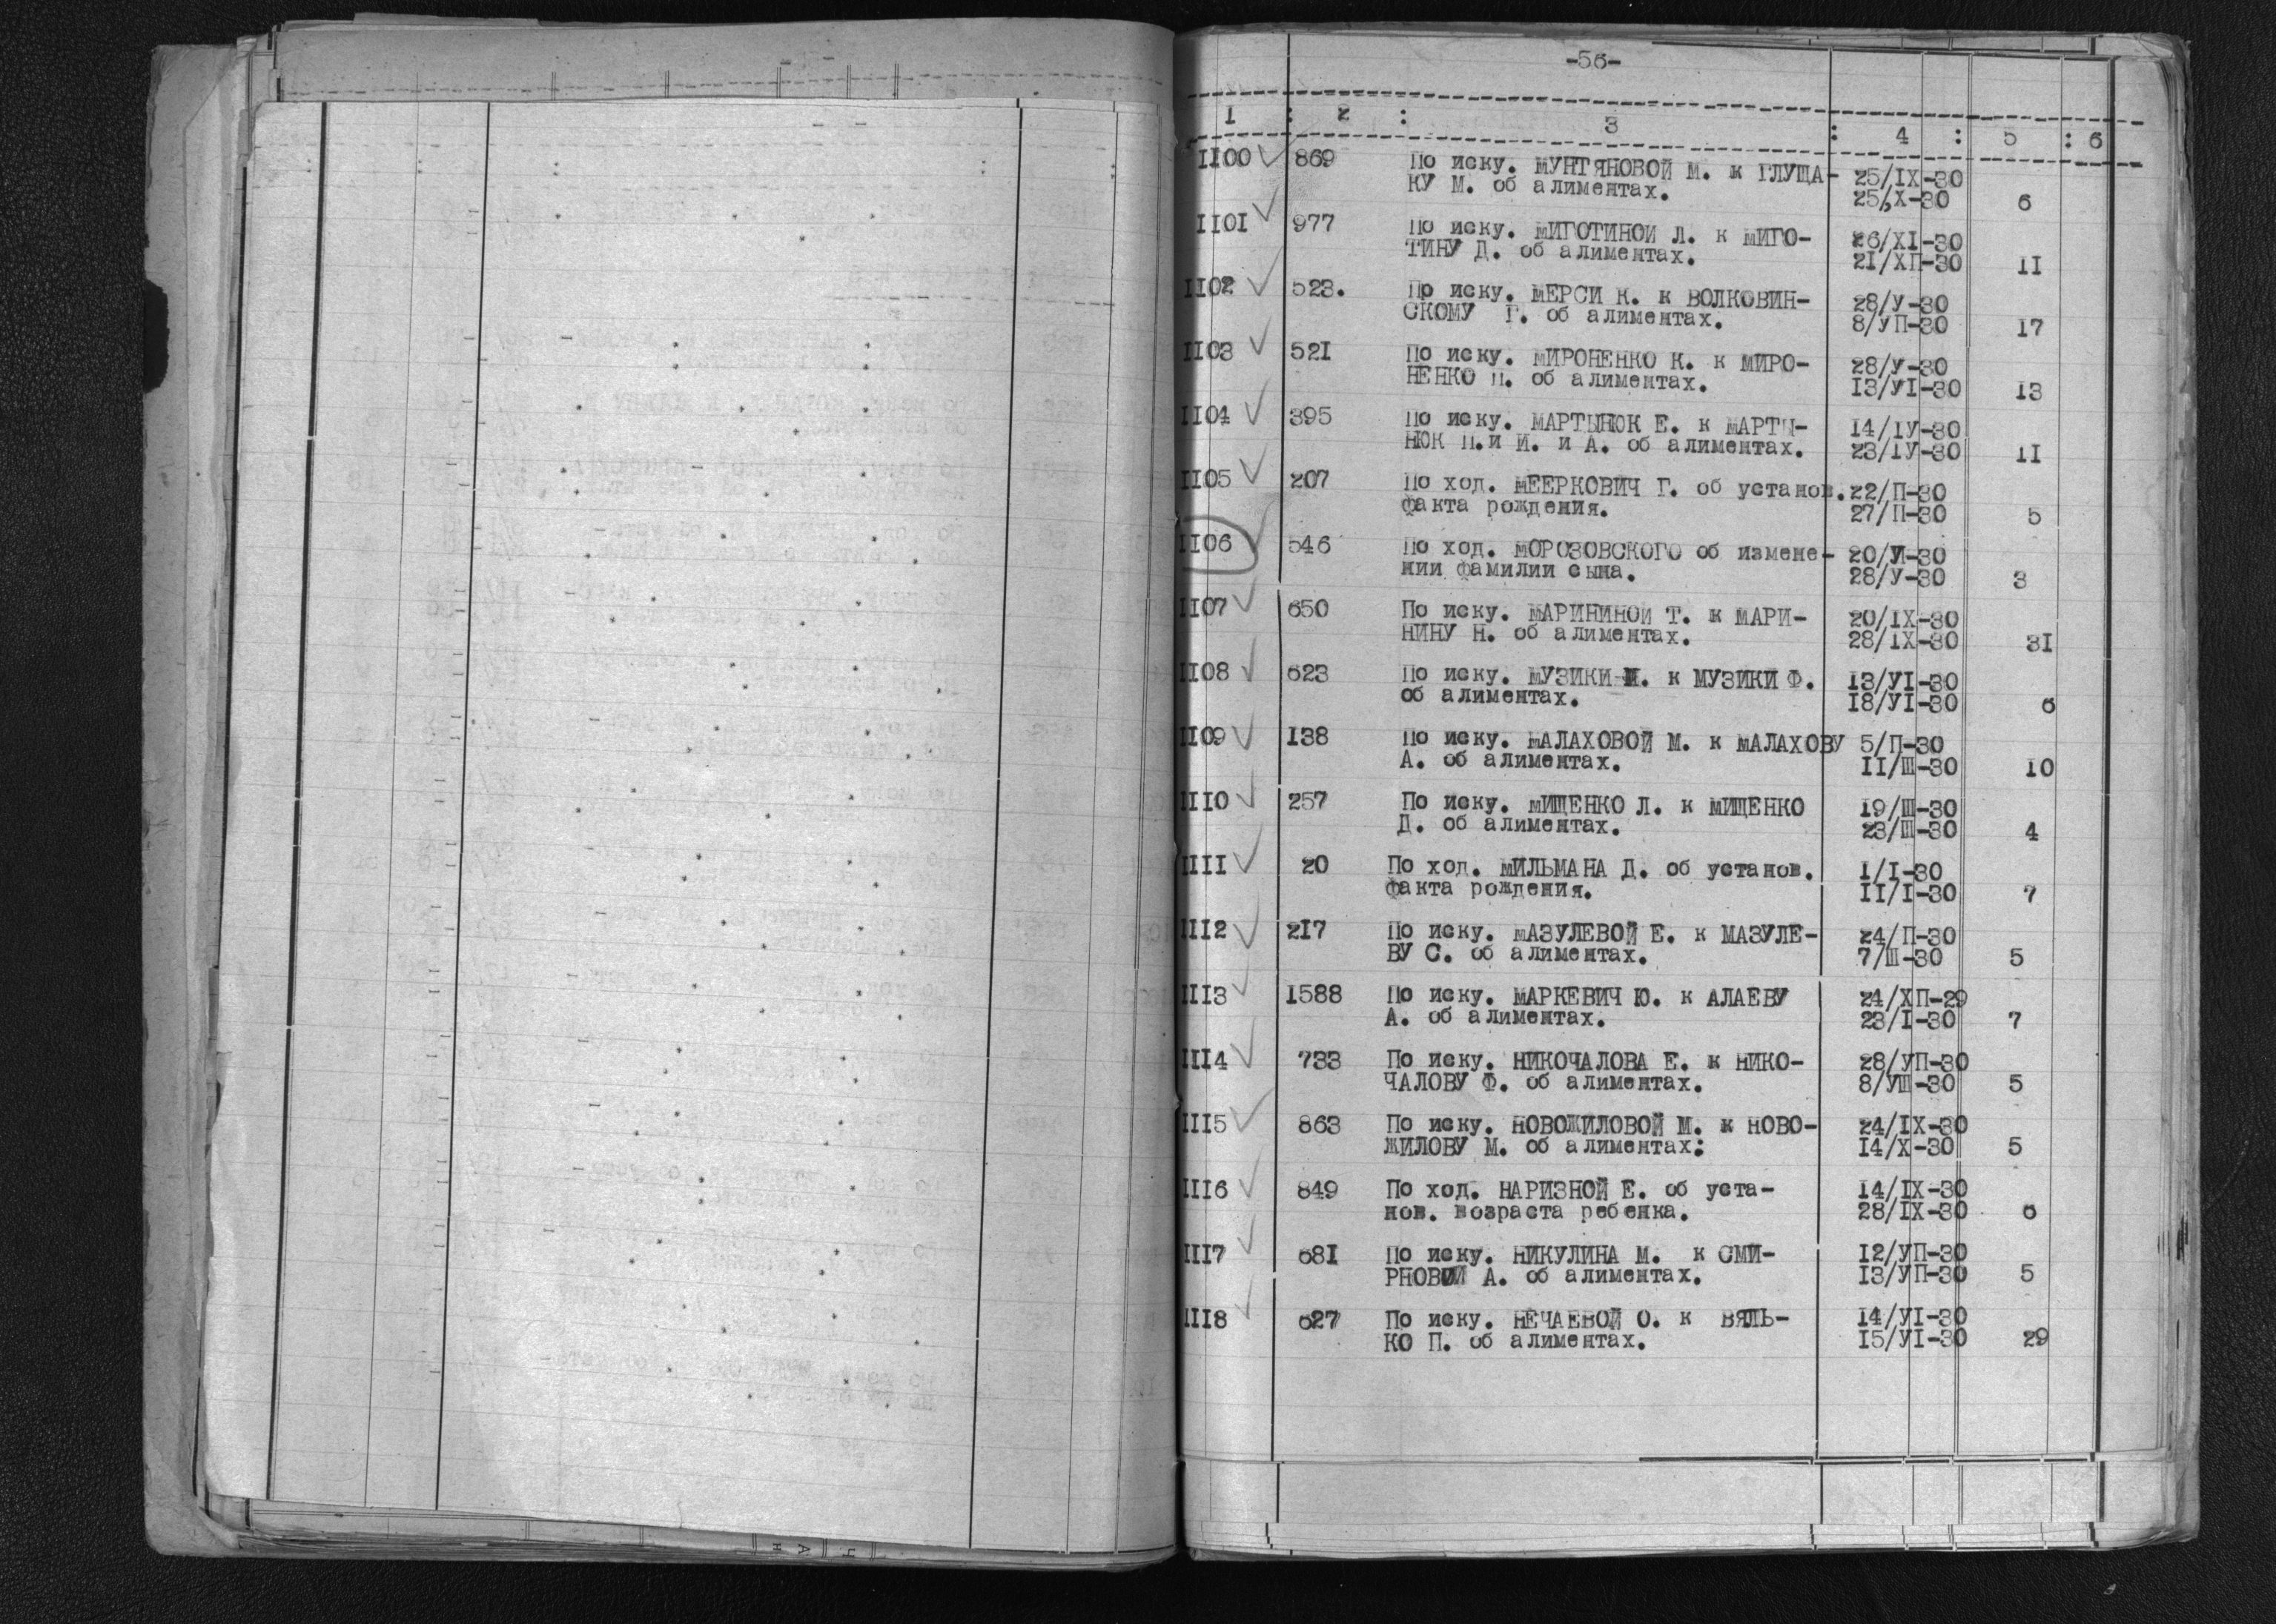 -56-
1 : 2 : 3 : 4 : 5 : 6
1100 869 По иску. МУНТЯНОВОЙ М. к ГЛУЩА- 25/IX-30
КУ М. об алиментах. 25/X-30 6
1101 977 По иску. МИГОТИНОЙ Л. к МИГО- 26/XI-30
ТИНУ Д. об алиментах. 21/ХП-30 11
1102 523. По иску. МЕРСИ К. к ВОЛКОВИН- 28/У-30
СКОМУ Г. об алиментах. 8/УП-30 17
1103 521 По иску. МИРОНЕНКО К. к МИРО- 28/У-30
НЕНКО П. об алиментах. 13/УI-30 13
1104 395 По иску. МАРТЫНЮК Е. к МАРТЫ- 14/IУ-30
НЮК П. и И. и А. об алиментах. 23/IУ-30 11
1105 207 По ход. МЕЕРКОВИЧ Г. об установ. 22/П-30
факта рождения. 27/П-30 5
1106 546 По ход. МОРОЗОВСКОГО об измене- 20/У-30
нии фамилии сына. 28/У-30 3
1107 650 По иску. МАРИНИНОЙ Т. к МАРИ- 20/IX-30
НИНУ Н. об алиментах. 28/IX-30 31
1108 623 По иску. МУЗИКИ И. к МУЗИКИ Ф. 13/УI-30
об алиментах. 18/УI-30 6
1109 138 По иску. МАЛАХОВОЙ М. к МАЛАХОВУ 5/П-30
А. об алиментах. 11/Ш-30 10
1110 257 По иску. МИЩЕНКО Л. к МИЩЕНКО 19/Ш-30
Д. об алиментах. 23/Ш-30 4
1111 20 По ход. МИЛЬМАНА Д. об установ. 1/I-30
факта рождения. 11/I-30 7
1112 217 По иску. МАЗУЛЕВОЙ Е. к МАЗУЛЕ- 24/П-30
ВУ С. об алиментах. 7/Ш-30 5
1113 1588 По иску. МАРКЕВИЧ Ю. к АЛАЕВУ 24/ХП-29
А. об алиментах. 23/I-30 7
1114 733 По иску. НИКОЧАЛОВА Е. к НИКО- 28/УП-30
ЧАЛОВУ Ф. об алиментах. 8/УШ-30 5
1115 863 По иску. НОВОЖИЛОВОЙ М. к НОВО- 24/IX-30
ЖИЛОВУ М. об алиментах: 14/X-30 5
1116 849 По ход. НАРИЗНОЙ Е. об уста- 14/IX-30
нов. возраста ребенка. 28/IX-30 6
1117 681 По иску. НИКУЛИНА М. к СМИ- 12/УП-30
РНОВОЙ А. об алиментах. 13/УП-30 5
1118 627 По иску. НЕЧАЕВОЙ О. к ВЯЛЬ- 14/УI-30
КО П. об алиментах. 15/УI-30 29